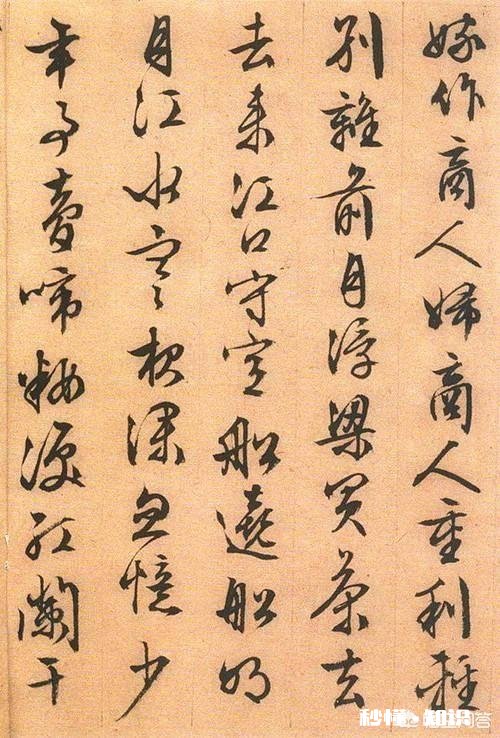 嫁作商人婦商人重利輕
別離前月浮梁買茶去
去来江口守空船遶船明
月江水寒夜深忽憶少
年事夢啼粧淚紅闌干
秒懂·知识